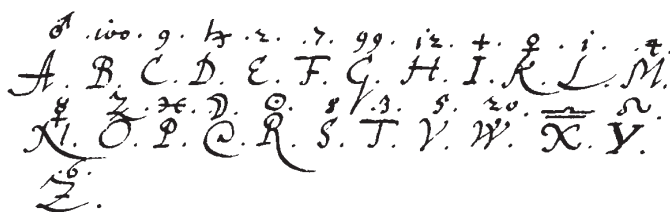 ♂ . 100 . 9 . ♄ . 2 . .7. 99 . 12 . + . ♀ . 1 . 4.
A. B. C. D. E. F. G. H. I. K. L. M.
☿ ♃ . ♓ . ☽ . ☉ . 8 .3. 5. 20. ♎ ♌
N. O. P. Q. R. S. T. V. W. X. Y.
.6.
Z.